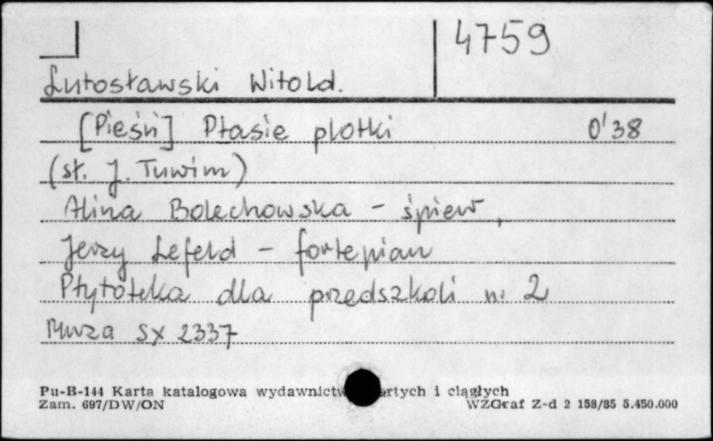 4759
Lutosławski Witold.
[Pieśń] Ptasie plotki 0'38
(sł. J. Tuwim)
Alina Bolechowska - śpiew,
Jerzy Lefeld - fortepian
Płytoteka dla przedszkoli nr 2
Muza SX 2337
Pu-B-144 Karta katalogowa wydawnictw i ciągłych
Zam. 697/DW/ON WZGraf Z-d 2 158/85 5.450.000